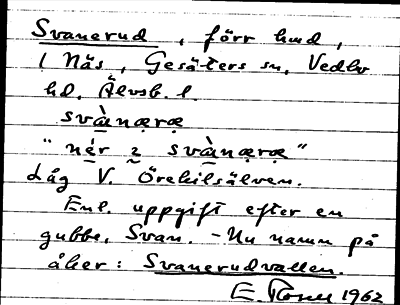 Svanerud, förr hmd,
i Näs, Gesäters sn, Vedbo
hd, Älvsb. l.
svànæræ
"nér ɂ svànæræ"
Låg V. Örekilsälven.
Enl. uppgift efter en
gubbe, Svan. - Nu namn på
åker: Svanerudvallen.
E. 1962